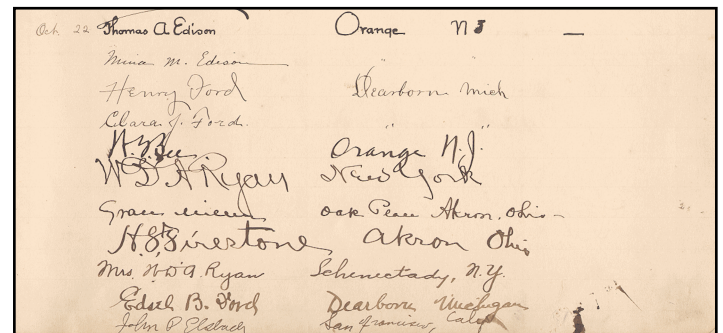 Oct. 22 Thomas A. Edison Orange N J —
Mina M. Edison
Henry Ford Dearborn Mich
Clara J. Ford. "
Orange N.J.
W D'A Ryan New York
Oak Akron, Ohio
H.S. Firestone Akron Ohio
Mrs. W. D'A. Ryan Schenectady, N.Y.
Edsel B. Ford Dearborn Michigan
John P San Francisco, Calif